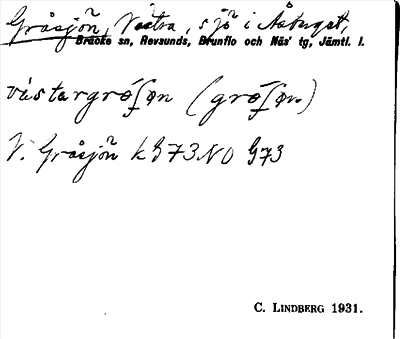 Gråsjön, Västra, sjö i Åsbygst,
Bräcke sn, Revsunds, Brunflo och Näs' tg, Jämtl. l.
västargrǿʃøn (grǿʃøn)
V. Gråsjön k G73NO G73
C. LINDBERG 1931.